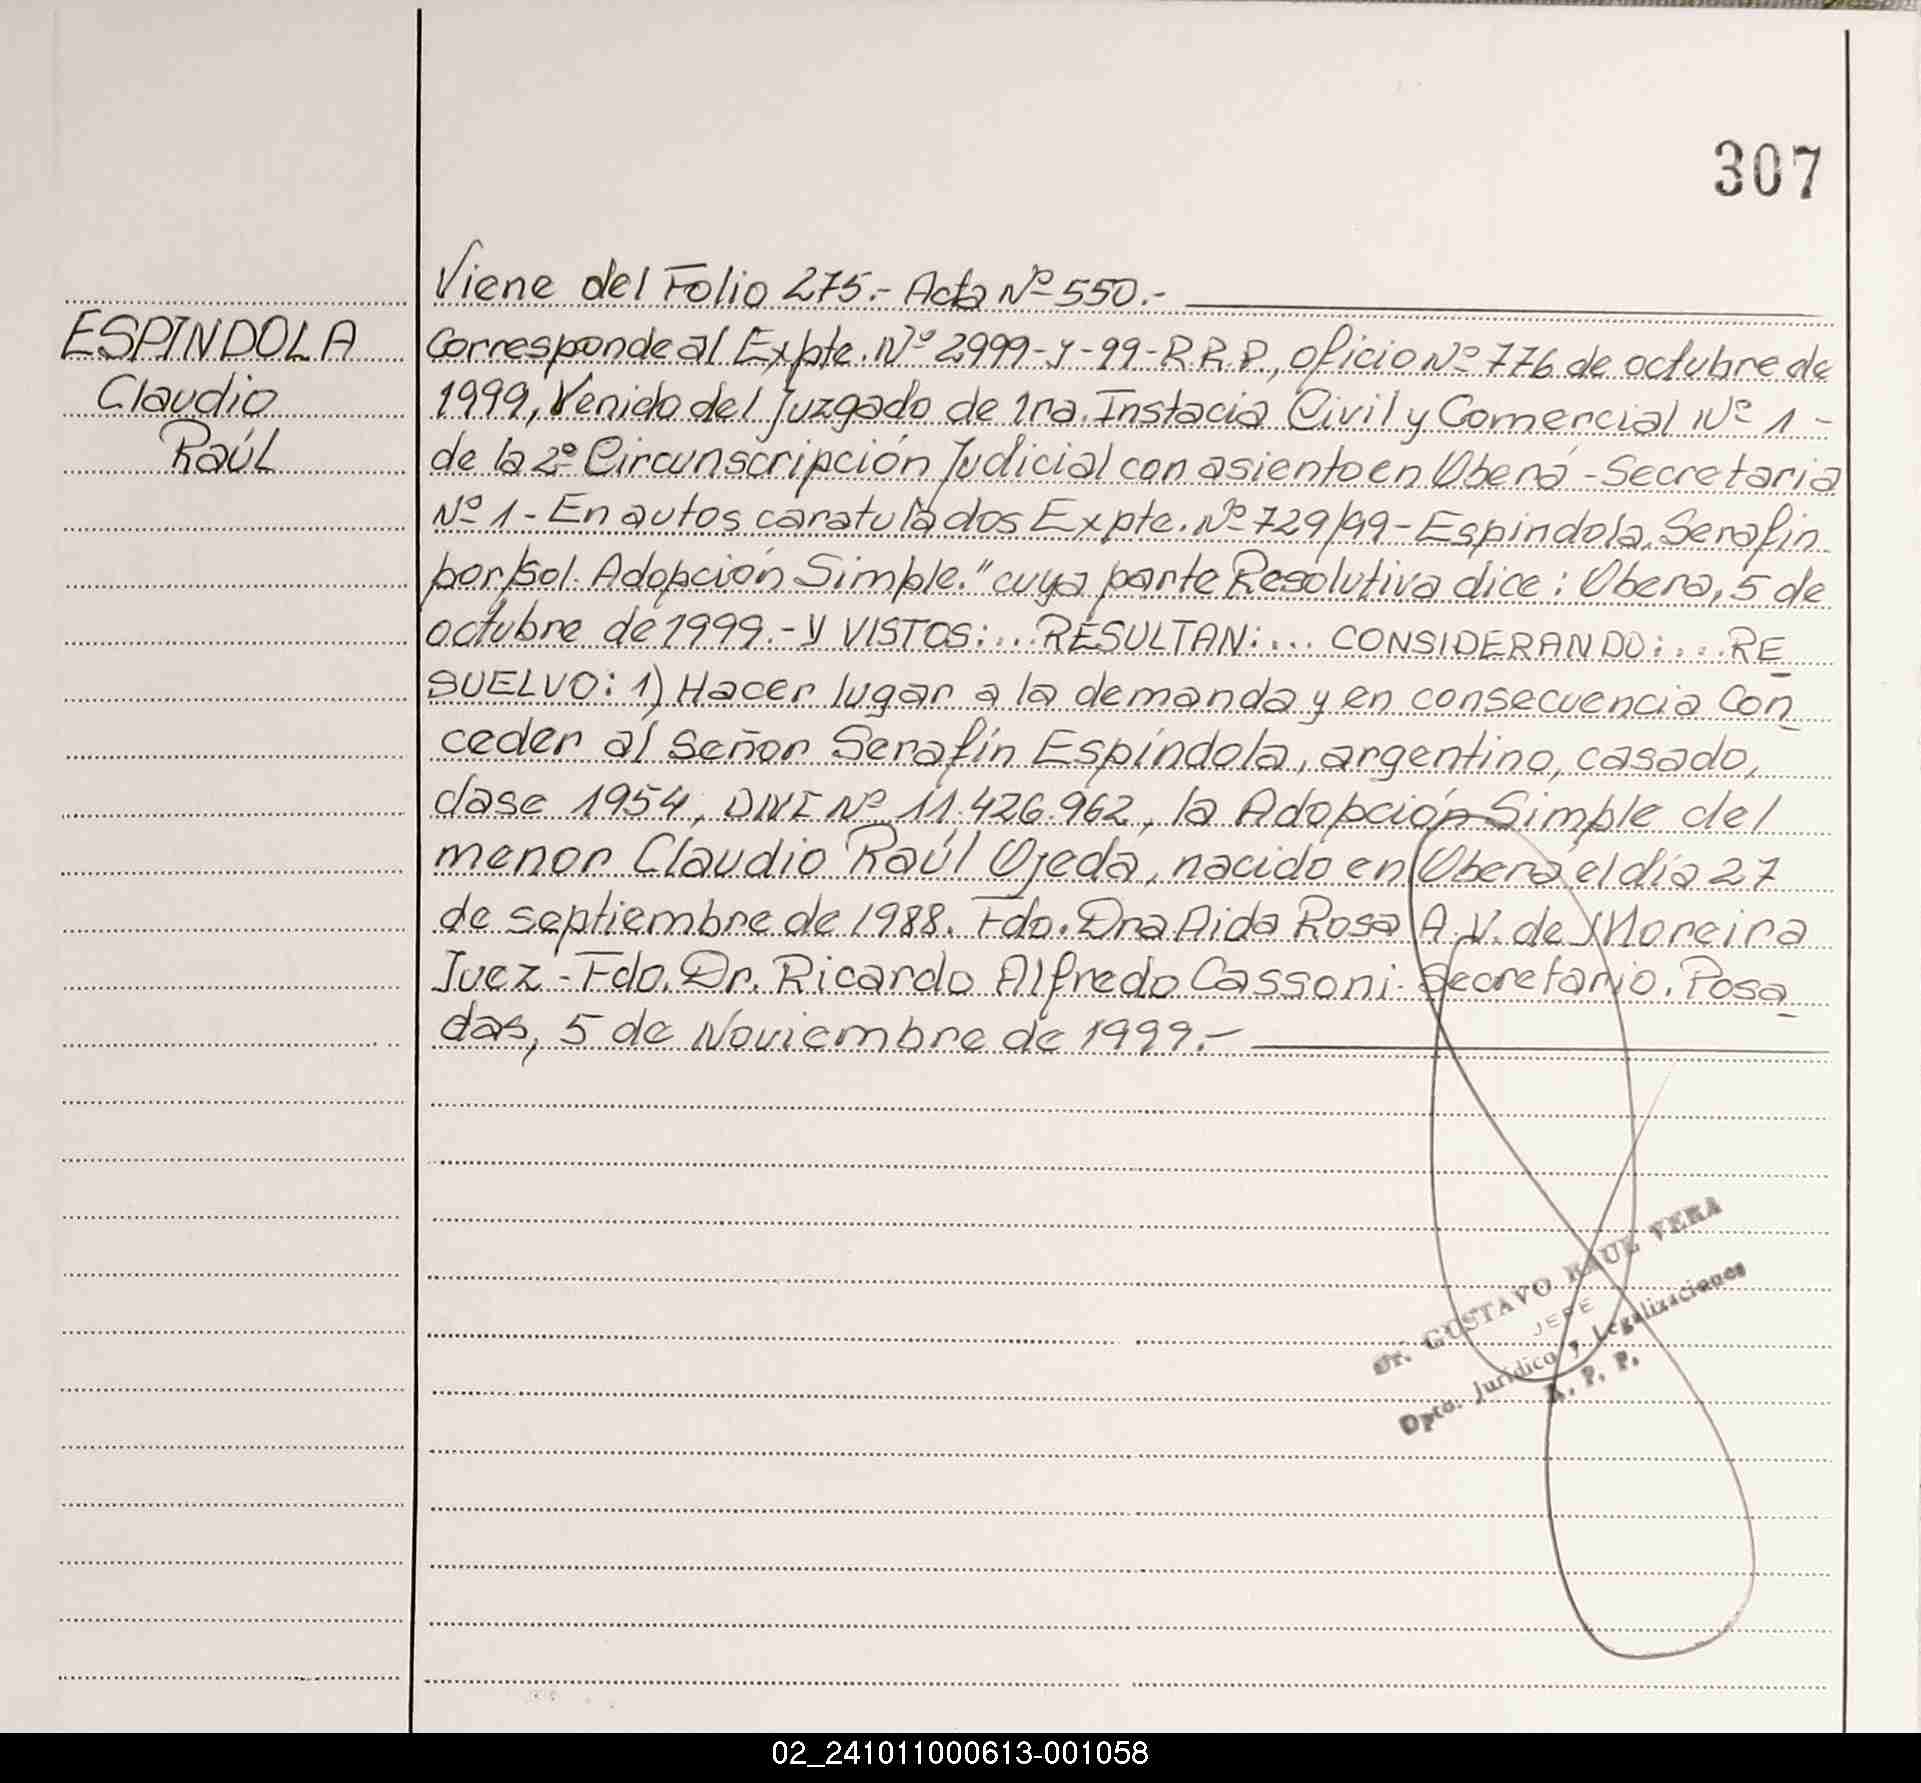 307
Viene del Folio 275.- Acta Nº 550.-
ESPINDOLA
Claudio
Raúl
Corresponde al Expte. Nº 2999-y-99-R.R.P., oficio Nº 776 de octubre de
1999, Venido del Juzgado de 1ra. Instacia Civil y Comercial Nº 1 -
de la 2º Circunscripción Judicial con asiento en Oberá - Secretaria
Nº 1 - En autos caratulados Expte. Nº 729/99 - Espindola, Serafin
por/sol. Adopción Simple." cuya parte Resolutiva dice: Obera, 5 de
octubre de 1999.- Y VISTOS:... RESULTAN:... CONSIDERANDO:... RE
SUELVO: 1) Hacer lugar a la demanda y en consecuencia Con
ceder al señor Serafín Espíndola, argentino, casado,
clase 1954, DNI Nº 11.426.962, la Adopción Simple del
menor Claudio Raúl Ojeda, nacido en Oberá el día 27
de septiembre de 1988. Fdo. Dra Aida Rosa A.V. de Moreira
Juez - Fdo. Dr. Ricardo Alfredo Cassoni. Secretario. Posa
das, 5 de Noviembre de 1999.-
Dr. GUSTAVO RAUL VERA
JEFE
Dpto. Jurídico y Legalizaciones
R. P. P.
02_241011000613-001058